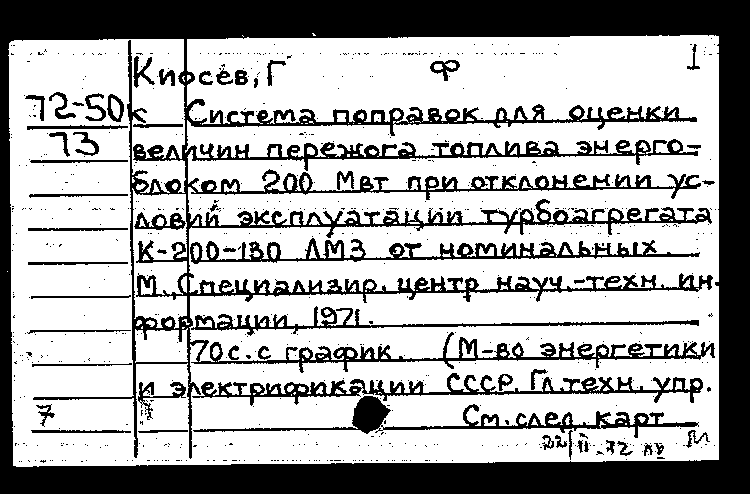 Киосев, Г Ф 1
72-50к Система поправок для оценки
73 величин пережога топлива энерго-
блоком 200 Мвт при отклонении ус-
ловий эксплуатации турбоагрегата
К-200-130 ЛМЗ от номинальных.
М., Специализир. центр науч.-техн. ин-
формации, 1971.
70с. с график. (М-во энергетики
и электрификации СССР. Гл. техн. упр.
7 См. след. карт
22/II-72